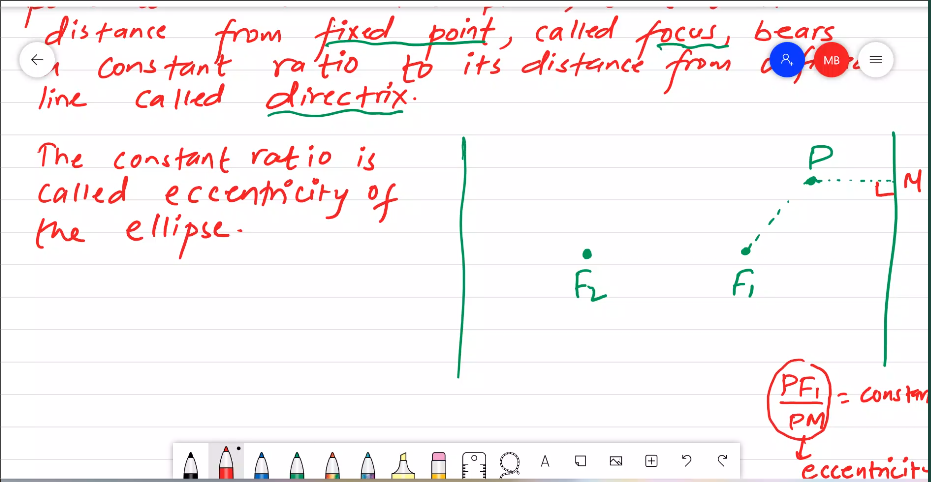 distance from fixed point, called focus, bears
constant ratio to its distance from
line called directrix.
The constant ratio is
called eccentricity of
the ellipse.
P
M
F2
F1
PF1
PM
= constan
eccentricity
MB
A